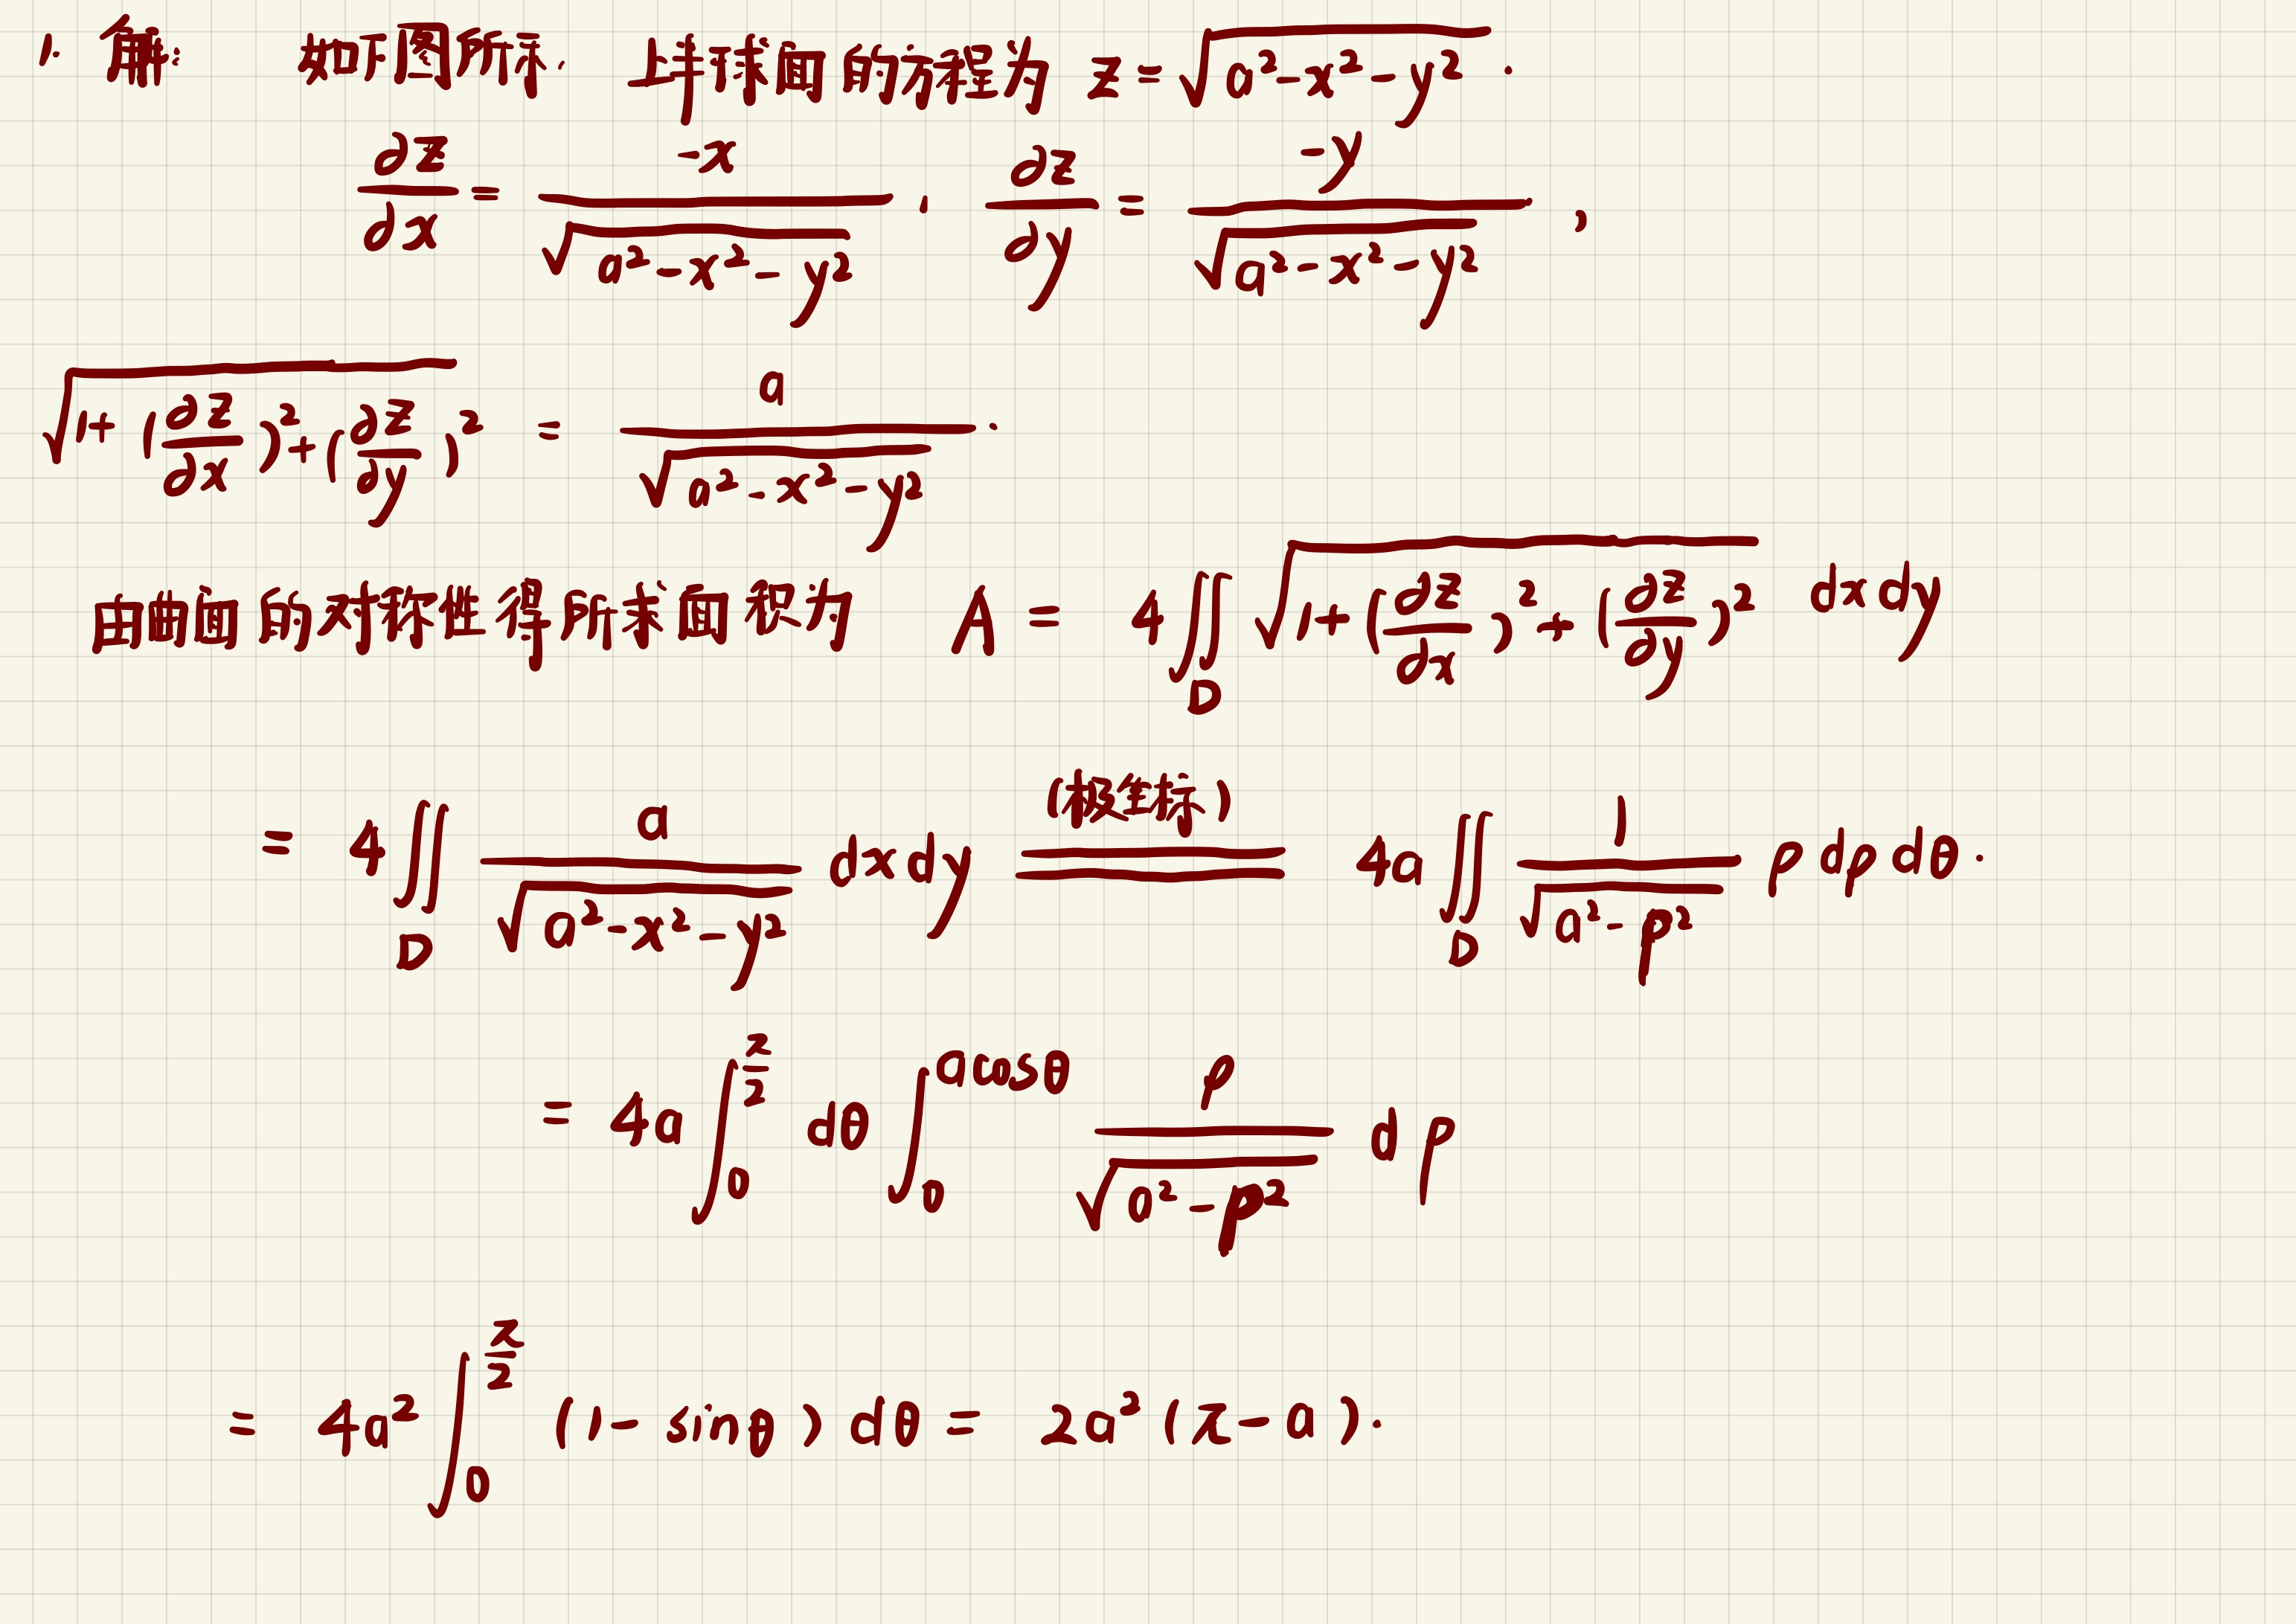 1. 解: 如下图所示, 上半球面的方程为 z = √(a² - x² - y²).
∂z/∂x = -x/√(a² - x² - y²), ∂z/∂y = -y/√(a² - x² - y²),
√(1 + (∂z/∂x)² + (∂z/∂y)²) = a/√(a² - x² - y²).
由曲面的对称性得所求面积为 A = 4∬_D √(1 + (∂z/∂x)² + (∂z/∂y)²) dxdy
= 4∬_D a/√(a² - x² - y²) dxdy =(极坐标)= 4a∬_D 1/√(a² - ρ²) ρ dρ dθ.
= 4a ∫_0^{π/2} dθ ∫_0^{a cosθ} ρ/√(a² - ρ²) dρ
= 4a² ∫_0^{π/2} (1 - sinθ) dθ = 2a²(π - a).